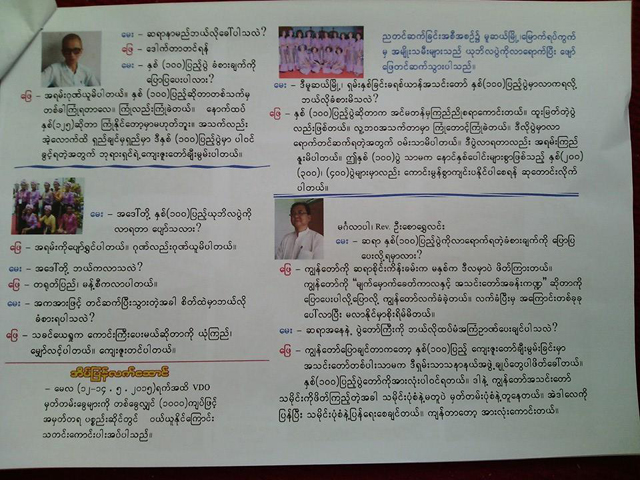 မေး – ဆရာနာမည်ဘယ်လိုခေါ်ပါသလဲ?
ဖြေ – ဒေါက်တာတင်ရန်
မေး – နှစ် (၁၀၀)ပြည့်ပွဲ ခံစားချက်ကို
ပြောပြပေးပါလား?
ဖြေ – အရမ်းဂုဏ်ယူမိပါတယ်။ နှစ် (၁၀၀) ပြည့်ဆိုတာတစ်သက်မှ
တစ်ခါကြုံရတာလေ။ ကြုံလည်းကြုံခဲတယ်။ နောက်ထပ်
နှစ်(၁၂၅)ဆိုတာ ကြုံနိုင်တော့မှာမဟုတ်ဘူး။ အသက်လည်း
အဲ့လောက်ထိ ရှည်ချင်မှရှည်မှာ ဒီနှစ် (၁၀၀)ပြည့်ပွဲမှာ ပါဝင်
ခွင့်ရတဲ့အတွက် ဘုရားရှင်ရဲ့ကျေးဇူးတော်ချီးမွမ်းပါတယ်။
မေး – အဒေါ်တို့ နှစ်(၁၀၀)ပြည့်ယုဘိလပွဲကို
လာရတာ ပျော်သလား?
ဖြေ – အရမ်းကိုပျော်ရွှင်ပါတယ်။ ဂုဏ်လည်းဂုဏ်ယူမိပါတယ်။
မေး – အဒေါ်တို့ ဘယ်ကလာသလဲ?
ဖြေ – တရုတ်ပြည်၊ မန့်စီကလာပါတယ်။
မေး – အကအားဖြင့် တင်ဆက်ပြီးသွားတဲ့အခါ စိတ်ထဲမှာဘယ်လို
ခံစားရပါသလဲ?
ဖြေ – သခင်ယေရှုက ကောင်းကြီးပေးမယ်ဆိုတာကို ယုံကြည်၊
မျှော်လင့်ပါတယ်။ ကျေးဇူးတင်ပါတယ်။
အိပ်မြှုံလက်ဆောင်
– မေလ (၁၂–၁၄ . ၅ . ၂၀၁၅)ရက်အထိ VDO
မှတ်တမ်းခွေများကို တစ်ခွေလျှင် (၁၀၀၀)ကျပ်ဖြင့်
အမှတ်တရ ပစ္စည်းဆိုင်တွင် ဝယ်ယူနိုင်ကြောင်း
သတင်းကောင်းပါးအပ်ပါသည်။
ညတင်ဆက်ခြင်းအစီအစဉ်၌ မူဆယ်မြို့၊မြောက်ရပ်ကွက်
မှ အမျိုးသမီးများသည် ယုဘိလပွဲကိုလာရောက်ပြီး ဖျော်
ဖြေတင်ဆက်သွားပါသည်။
မေး – ဒီမူဆယ်မြို့၊ ရှမ်းနှစ်ခြင်းခရစ်ယာန်အသင်းတော် နှစ်(၁၀၀)ပြည့်ပွဲမှာလာကရလို့
ဘယ်လိုခံစားမိသလဲ?
ဖြေ – နှစ် (၁၀၀)ပြည့်ပွဲဆိုတာက အင်မတန်မှကြည်ညိုစရာကောင်းတယ်။ ထူးမြတ်တဲ့ပွဲ
လည်းဖြစ်တယ်။ လူ့ဘဝအသက်တာမှာ ကြုံတောင့်ကြုံခဲတယ်။ ဒီလိုပွဲမှာလာ
ရောက်တင်ဆက်ရတဲ့အတွက် ဝမ်းသာမိပါတယ်။ ဒီပွဲလာရတာလည်း အရမ်းကြည်
နူးမိပါတယ်။ ဤနှစ် (၁၀၀) ပွဲ သာမက နောင်နှစ်ပေါင်းများစွာဖြစ်သည့် နှစ်(၂၀၀)
(၃၀၀)၊ (၄၀၀)ပွဲများမှာလည်း ကောင်းမွန်စွာကျင်းပနိုင်ပါစေရန် ဆုတောင်းလိုက်
ပါတယ်။
မင်္ဂလာပါ၊ Rev. ဦးစောရွှေလင်း
မေး – ဆရာ နှစ်(၁၀၀)ပြည့်ပွဲကိုလာရောက်ရတဲ့ခံစားချက်ကို ပြောပြ
ပေးလို့ရမှာလား?
ဖြေ – ကျွန်တော်ကို ဆရာစိုင်းကိန်းခမ်းက မနှစ်က ဒီလမှာပဲ ဖိတ်ကြားတယ်။
ကျွန်တော်ကို “မျက်မှောက်ခေတ်ကာလနှင့် အသင်းတော်အခန်းကဏ္ဍ” ဆိုတာကို
ပြောပေးပါလို့ပြောလို့ ကျွန်တော်လက်ခံခဲ့တယ်။ လက်ခံပြီးမှ အကြောင်းတစ်ခုခု
ပေါ်လာပြီး မလာနိုင်မှာစိုးရိမ်မိတယ်။
မေး – ဆရာအနေနဲ့ ပွဲတော်ကြီးကို ဘယ်လိုထပ်မံအကြံဉာဏ်ပေးချင်ပါသလဲ?
ဖြေ – ကျွန်တော်ပြောချင်တာကတော့ နှစ်(၁၀၀)ပြည့် ကျေးဇူးတော်ချီးမွမ်းခြင်းမှာ
အသင်းတော်တစ်ပါးသာမက ဒီရှမ်းသာသနာနယ်အဖွဲ့ချုပ်တွေပါဖိတ်ခေါ်တယ်။
နှစ်(၁၀၀)ပြည့်ပွဲတော်ကိုအားလုံးပါဝင်ရတယ်။ ဒါနဲ့ ကျွန်တော်အသင်းတော်
သမိုင်းကိုဖိတ်ကြည့်တဲ့အခါ သမိုင်းပုံစံနဲ့မတူပဲ မှတ်တမ်းပုံစံနဲ့တူနေတယ်။ အဲဒါလေးကို
ပြန်ပြီး သမိုင်းပုံစံနဲ့ပြန်ရေးစေချင်တယ်။ ကျန်တာတော့ အားလုံးကောင်းတယ်။